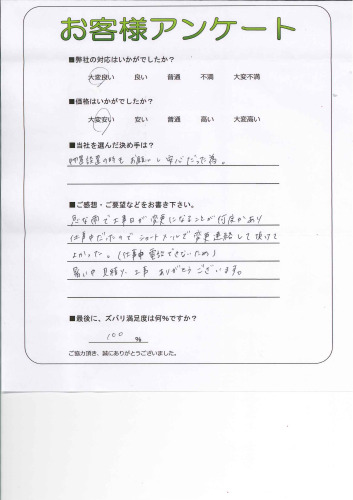 お客様アンケート
■弊社の対応はいかがでしたか?
大変良い 良い 普通 不満 大変不満
■価格はいかがでしたか?
大変安い 安い 普通 高い 大変高い
■当社を選んだ決め手は?
物置設置の時も お願いし 安心だった為。
■ご感想・ご要望などをお書き下さい。
急な雨で工事日が変更になることが何度かあり
仕事中だったので ショートメールで変更連絡して頂けて
よかった。(仕事中電話できないため)
暑い中 見積り、工事 ありがとうございます。
■最後に、ズバリ満足度は何%ですか?
100 %
ご協力頂き、誠にありがとうございました。